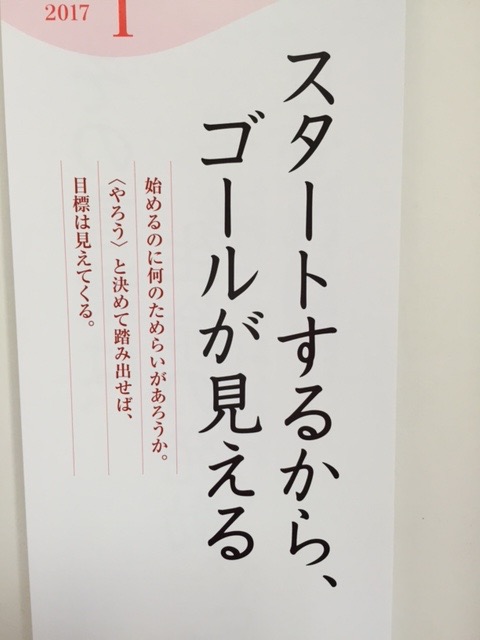 2017
1
スタートするから、
ゴールが見える
始めるのに何のためらいがあろうか。
〈やろう〉と決めて踏み出せば、
目標は見えてくる。